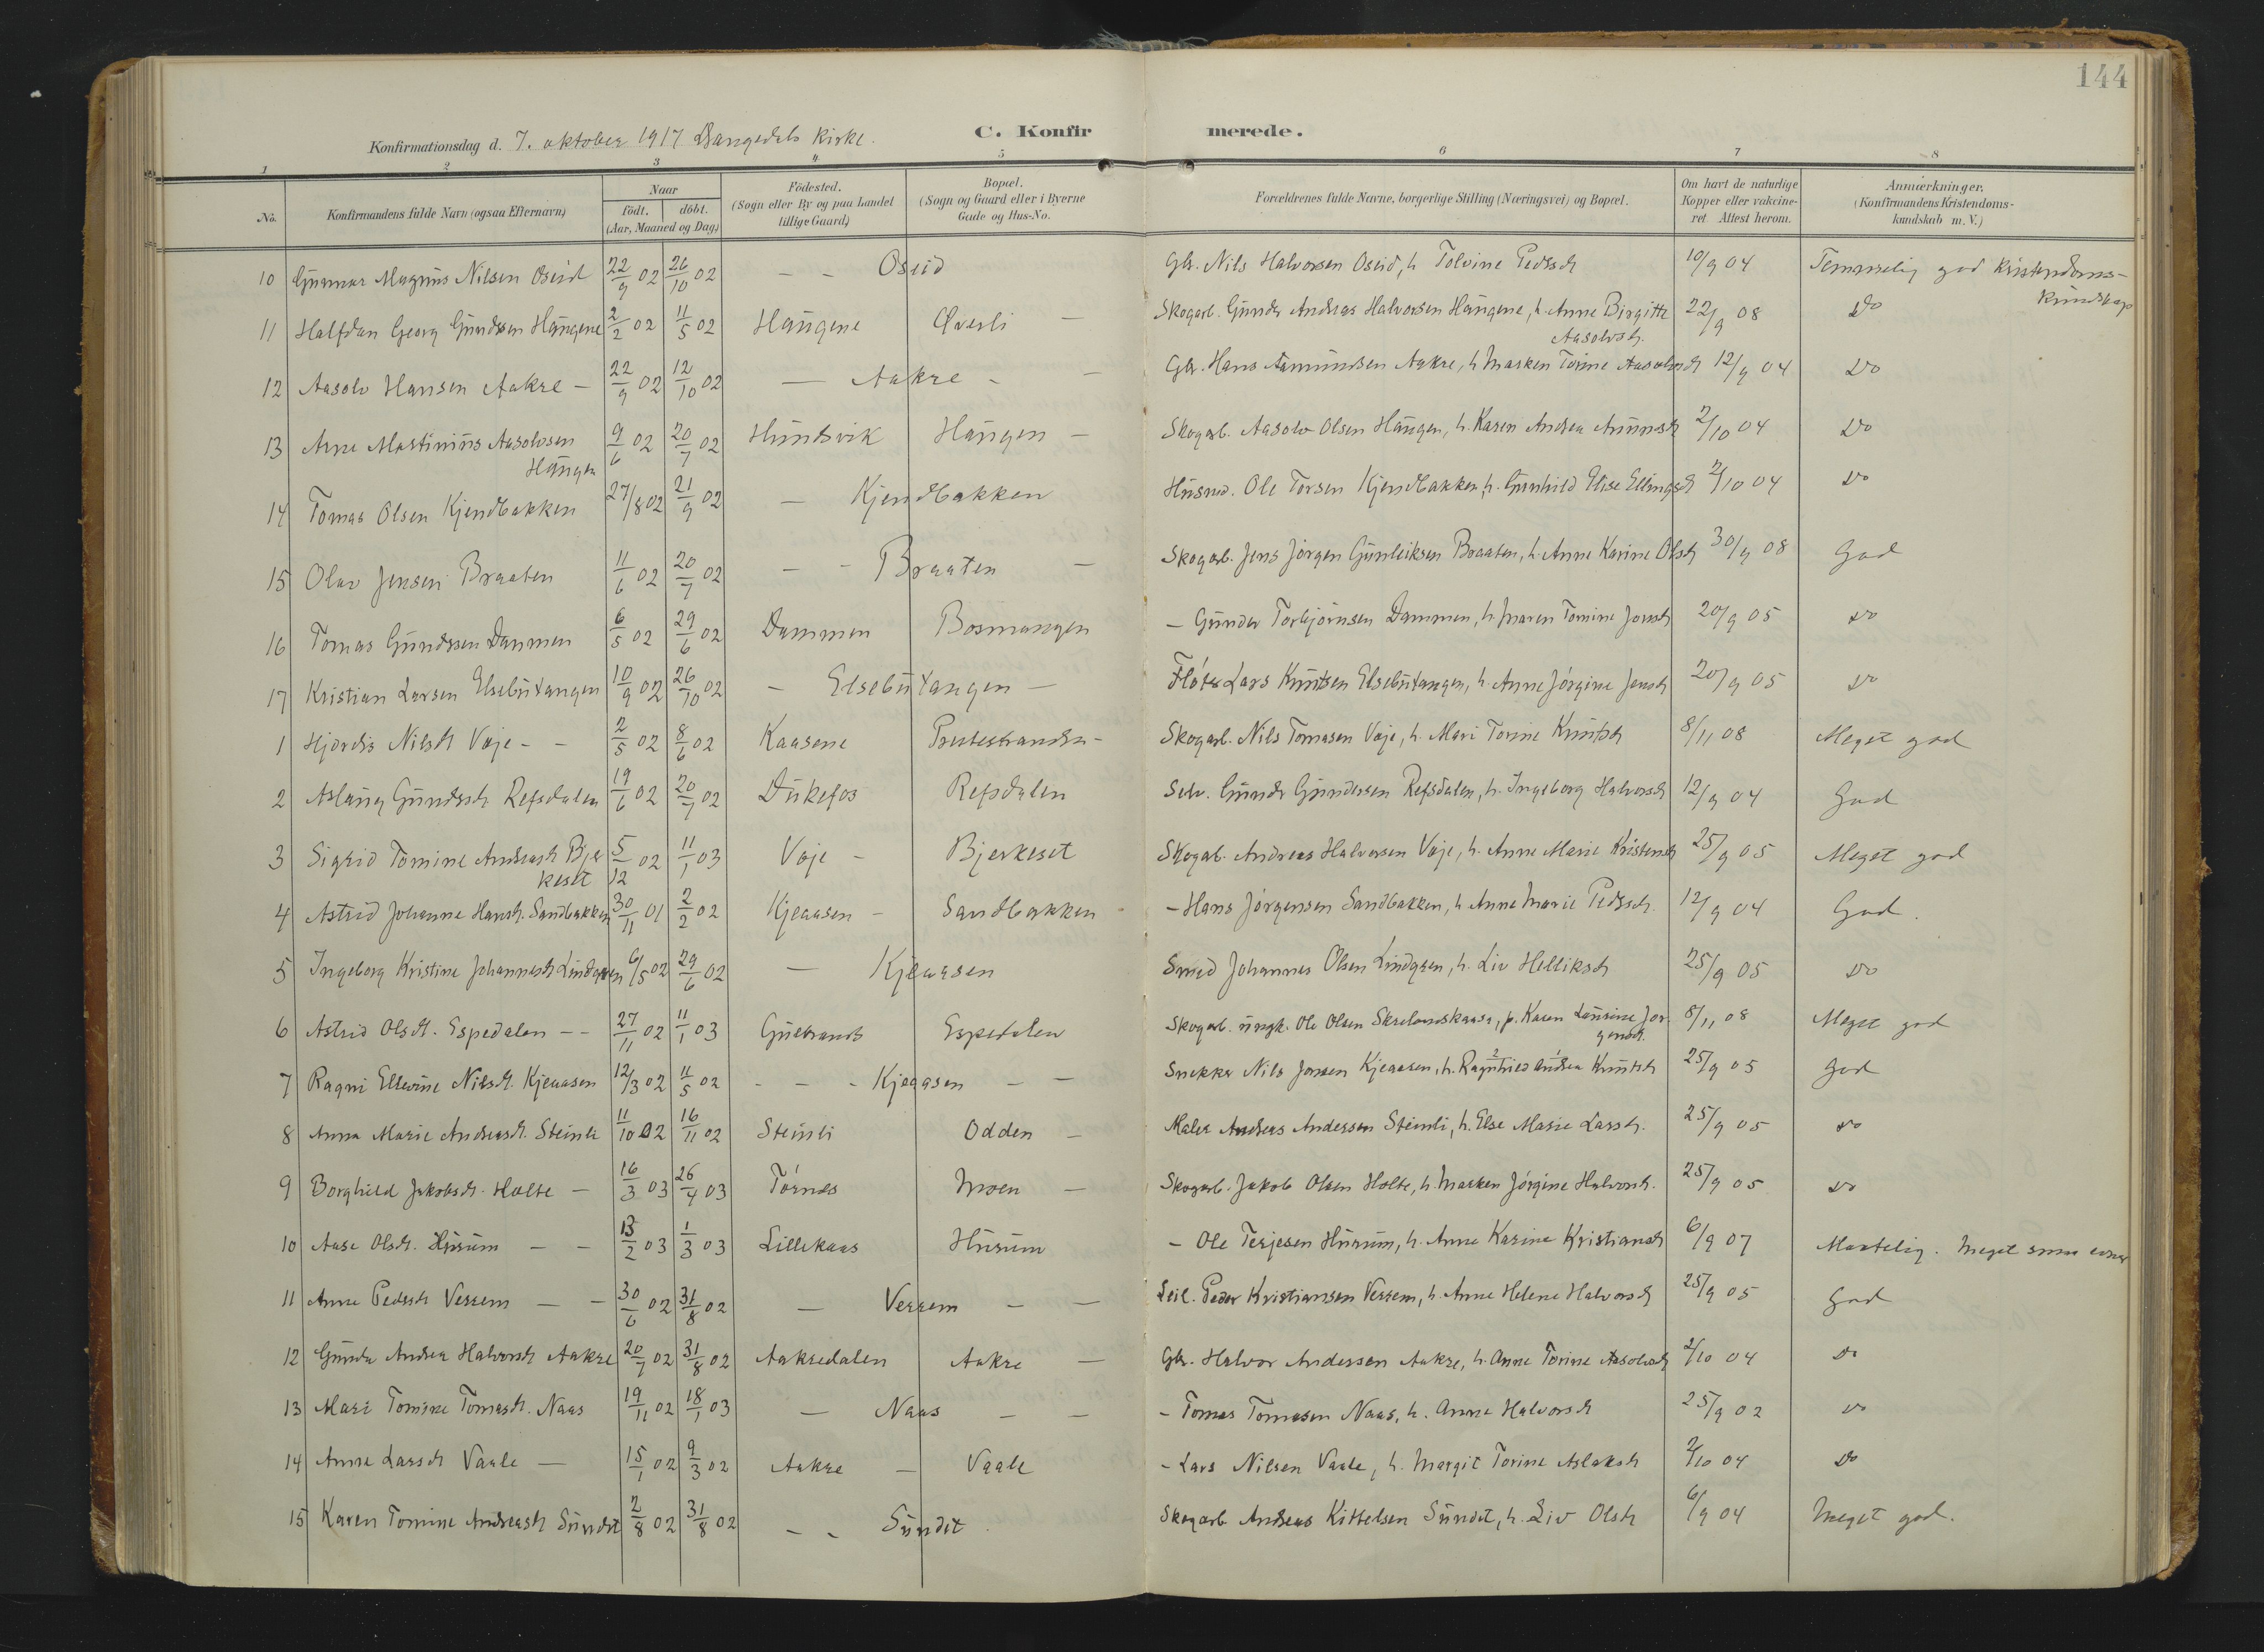 144
Konfirmationsdag d. 7. oktober 1917 Drangedals Kirke.
C. Konfirmerede.
1 2 3 4 5 6 7 8
No. Konfirmandens fulde Navn (ogsaa Efternavn) Naar födt. döbt. (Aar, Maaned og Dag) Födested. (Sogn eller By og paa Landet tillige Gaard) Bopæl. (Sogn og Gaard eller i Byerne Gade og Hus-No. Forældrenes fulde Navne, borgerlige Stilling (Næringsvei) og Bopæl. Om havt de naturlige Kopper eller vakcineret Attest herom. Anmærkninger. (Konfirmandens Kristendomskundskab m. V.)
10 Gunnar Magnus Nilsen Oseid 22/9 02 26/10 02 - - Oseid Gbr. Nils Halvorsen Oseid, h. Tolvine Pedersd 10/9 04 Temmelig god kristendomskundskap
11 Halfdan Georg Gundersen Haugene 2/2 02 11/5 02 Haugene Øverli - Skogarb. Gunder Andreas Halvorsen Haugene, h. Anne Birgitte Aasolvsd. 22/9 08 Do
12 Aasolv Hansen Aakre - 22/9 02 12/10 02 - Aakre - - Gbr. Hans Aamundsen Aakre, h. Marken Torine Aasolvsd 12/9 04 Do
13 Arne Martinius Aasolvsen Haugen 9/6 02 20/7 02 Hundsvik Haugen - Skogarb. Aasolv Olsen Haugen, h. Karen Andrea Anundsd 2/10 04 Do
14 Tomas Olsen Kjendbakken 27/8 02 21/9 02 - Kjendbakken Husmd. Ole Torsen Kjendbakken, h. Gunhild Elise Ellingsd 2/10 04 Do
15 Olav Jensen Braaten 11/6 02 20/7 02 - - Braaten - Skogarb. Jens Jörgen Gunleiksen Braaten, h. Anne Karine Olsd 30/9 08 God
16 Tomas Gundersen Dammen 6/5 02 29/6 02 Dammen Bosmangen - Gunder Torbjörnsen Dammen, h. Maren Tomine Jonsd 20/9 05 Do
17 Kristian Larsen Elsebutangen 10/9 02 26/10 02 - Elsebutangen - Flöter Lars Knutsen Elsebutangen, h. Anne Jörgine Jensd 20/9 05 Do
1 Hjördis Nilsd. Voje - - 2/5 02 8/6 02 Kaasene Prestestranden - Skogarb. Nils Tomasen Voje, h. Mari Torine Knutsd 8/11 08 Meget god
2 Aslaug Gundersd. Refsdalen 19/6 02 20/7 02 Dukefos Refsdalen Selv. Gunder Gundersen Refsdalen, h. Ingeborg Halvorsd 12/9 04 God
3 Sigrid Tomine Andreasd. Bjerkeset 5/12 02 11/1 03 Voje - Bjerkeset Skogarb. Andreas Halvorsen Voje, h. Anne Marie Kristensd 25/9 05 Meget god
4 Astrid Johanne Hansd. Sandbakken 30/11 01 2/2 02 Kjeaasen - Sandbakken - Hans Jörgensen Sandbakken, h. Anne Marie Pedersd. 12/9 04 God.
5 Ingeborg Kristine Johannesd. Lindgren 6/5 02 29/6 02 - Kjeaasen Smed Johannes Olsen Lindgren, h. Liv Helliksd 25/9 05 Do
6 Astrid Olsd. Espedalen - - 27/11 02 11/1 03 Espedalen Skogarb. ungk. Ole Olsen, p. Karen Laurine Jörgensd. 8/11 08 Meget god
7 Ragni Ellevine Nilsd. Kjeaasen 12/3 02 11/5 02 - - - Kjeaasen - - Snekker Nils Jonsen Kjeaasen, h. Ragnhild Andrea Knutsd 25/9 05 God
8 Anna Marie Andreasd. Steinli 11/10 02 16/11 02 Steinli Odden - Maler Andreas Anderssen Steinli, h. Else Marie Larsd. 25/9 05 Do
9 Borghild Jakobsd. Holte - 16/3 03 26/4 03 Törnes Moen - Skogarb. Jakob Olsen Holte, h. Marken Jörgine Halvorsd. 25/9 05 Do
10 Aase Olsd. Husum - - 13/2 03 1/3 03 Lillekaas Husum - Ole Terjesen Husum, h. Anne Karine Kristiansd 6/9 07 Maatelig. Meget smaa evner
11 Anne Pedersd. Versem - - 30/6 02 31/8 02 - Versem - - Leil. Peder Kristiansen Versem, h. Anne Helene Halvorsd 25/9 05 God
12 Gunda Andrea Halvorsd. Aakre 20/7 02 31/8 02 Aakredalen Aakre - Gbr. Halvor Anderssen Aakre, h. Anne Torine Aasolvsd 2/10 04 Do
13 Mari Tomine Tomasd. Naas 19/11 02 18/1 03 - Naas - - - Tomas Tomasen Naas, h. Anne Halvorsd 25/9 02 Do
14 Anne Larsd. Vaale - 15/1 02 9/3 02 Aakre - Vaale - Lars Nilsen Vaale, h. Margit Torine Aslaksd 2/10 04 Do
15 Karen Tomine Andreasd Sundet 2/8 02 31/8 02 - - Sundet Skogarb Andreas Kittelsen Sundet, h. Liv Olsd 6/9 04 Meget god.